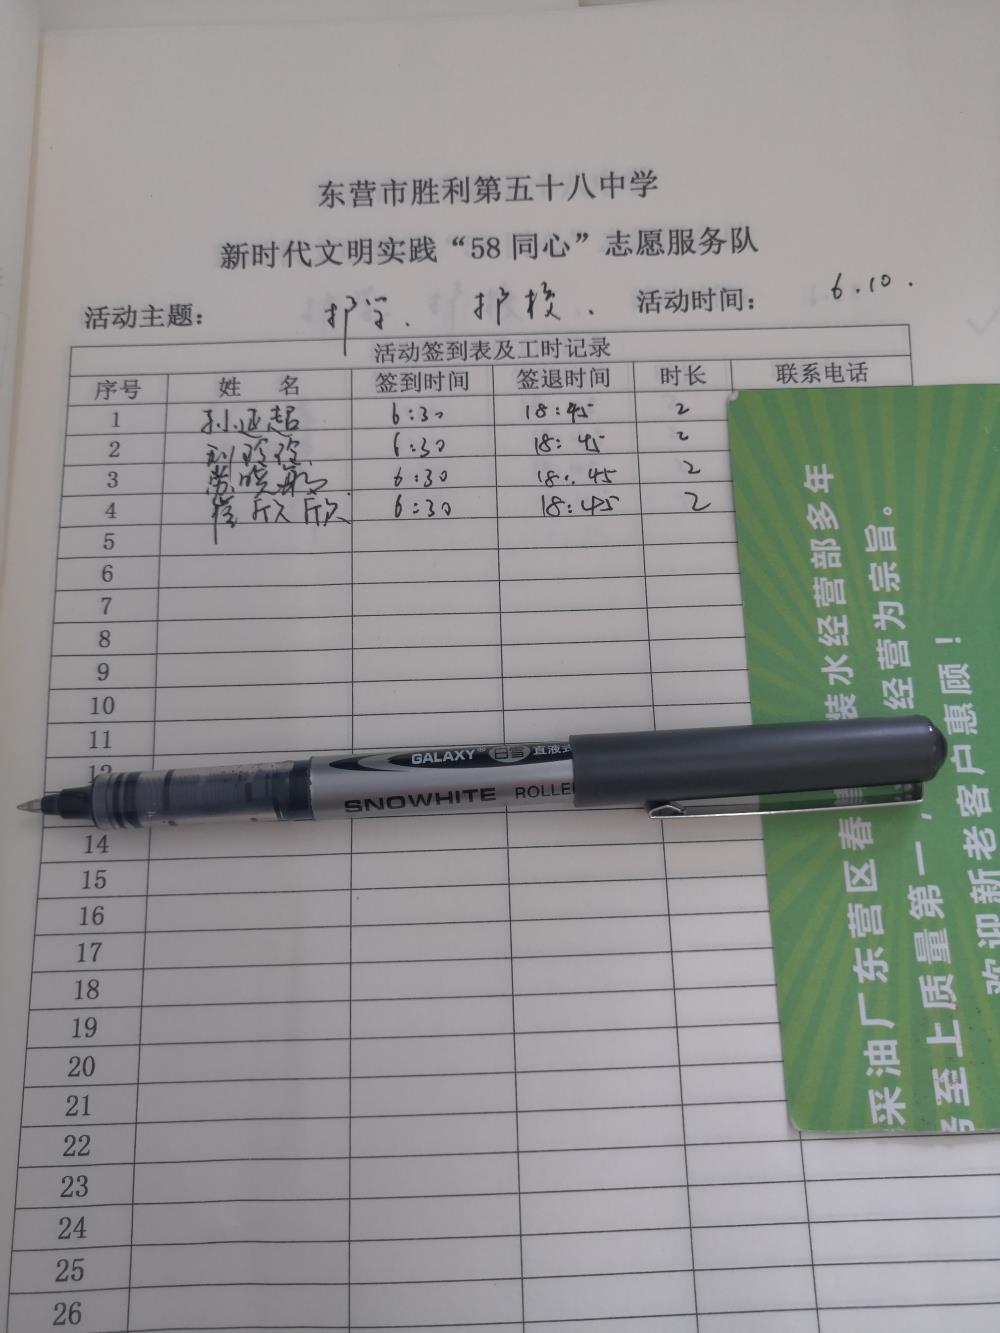 东营市胜利第五十八中学
新时代文明实践“58同心”志愿服务队
活动主题： 护学. 护校. 活动时间： 6.10.
活动签到表及工时记录
序号 姓 名 签到时间 签退时间 时长 联系电话
1 孙延超 6:30 18:45 2
2 刘玲玲 6:30 18:45 2
3 6:30 18:45 2
4 崔欣欣 6:30 18:45 2
5
6
7
8
9
10
11
12
14
15
16
17
18
19
20
21
22
23
24
25
26
GALAXY 直液式
SNOWHITE ROLLE
采油厂东营区春 装水经营部多年
至上质量第一， 经营为宗旨。
欢迎新老客户惠顾！